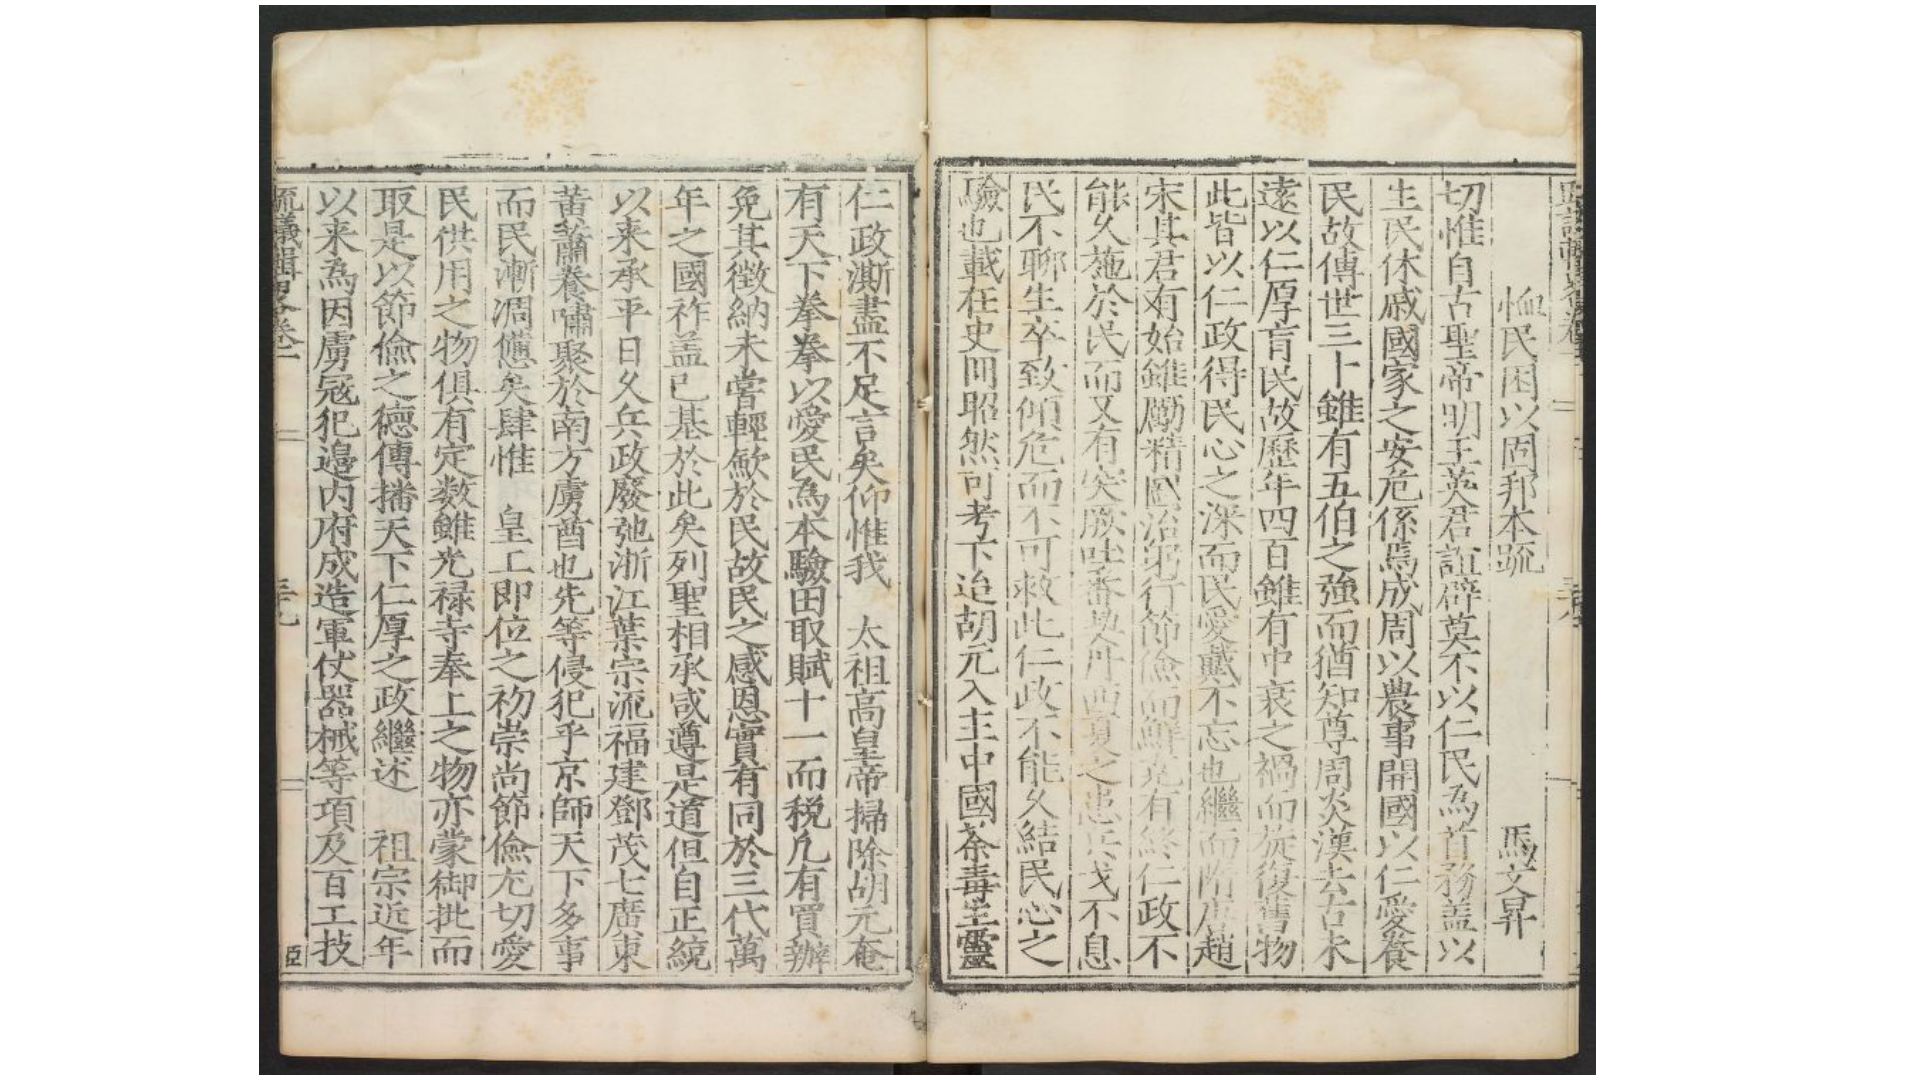 恤民困以固邦本疏 馬文昇
切惟自古聖帝明王英君誼辟莫不以仁民為首務盖以
生民休戚國家之安危係焉成周以農事開國以仁愛養
民故傳世三十雖有五伯之強而猶知尊周炎漢去古未
遠以仁厚育民故歷年四百雖有中衰之禍而旋復舊物
此皆以仁政得民心之深而民愛戴不忘也繼而隋唐趙
宋其君有始雖勵精圖治躬行節儉而鮮克有終仁政不
能久施於民而又有突厥吐蕃契丹西夏之患兵戈不息
民不聊生卒致傾危而不可救此仁政不能久結民心之
驗也載在史冊昭然可考下迨胡元入主中國荼毒生靈
仁政澌盡不足言矣仰惟我 太祖高皇帝掃除胡元奄
有天下拳拳以愛民為本驗田取賦十一而稅凢有買辦
免其徵納未嘗輕歛於民故民之感恩實有同於三代萬
年之國祚盖已基於此矣列聖相承咸遵是道但自正統
以来承平日久兵政廢弛浙江葉宗流福建鄧茂七廣東
黃蕭養嘯聚於南方虜酋也先等侵犯乎京師天下多事
而民漸凋憊矣肆惟 皇上即位之初崇尚節儉尢切愛
民供用之物俱有定数雖光禄寺奉上之物亦蒙御批而
取是以節儉之德傳播天下仁厚之政繼述 祖宗近年
以来為因虜寇犯邉内府成造軍仗器械等項及百工技
疏議輯畧卷二 三十九